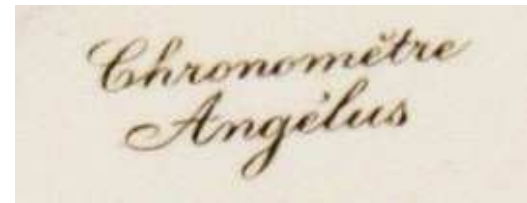 Chronomètre
Angélus